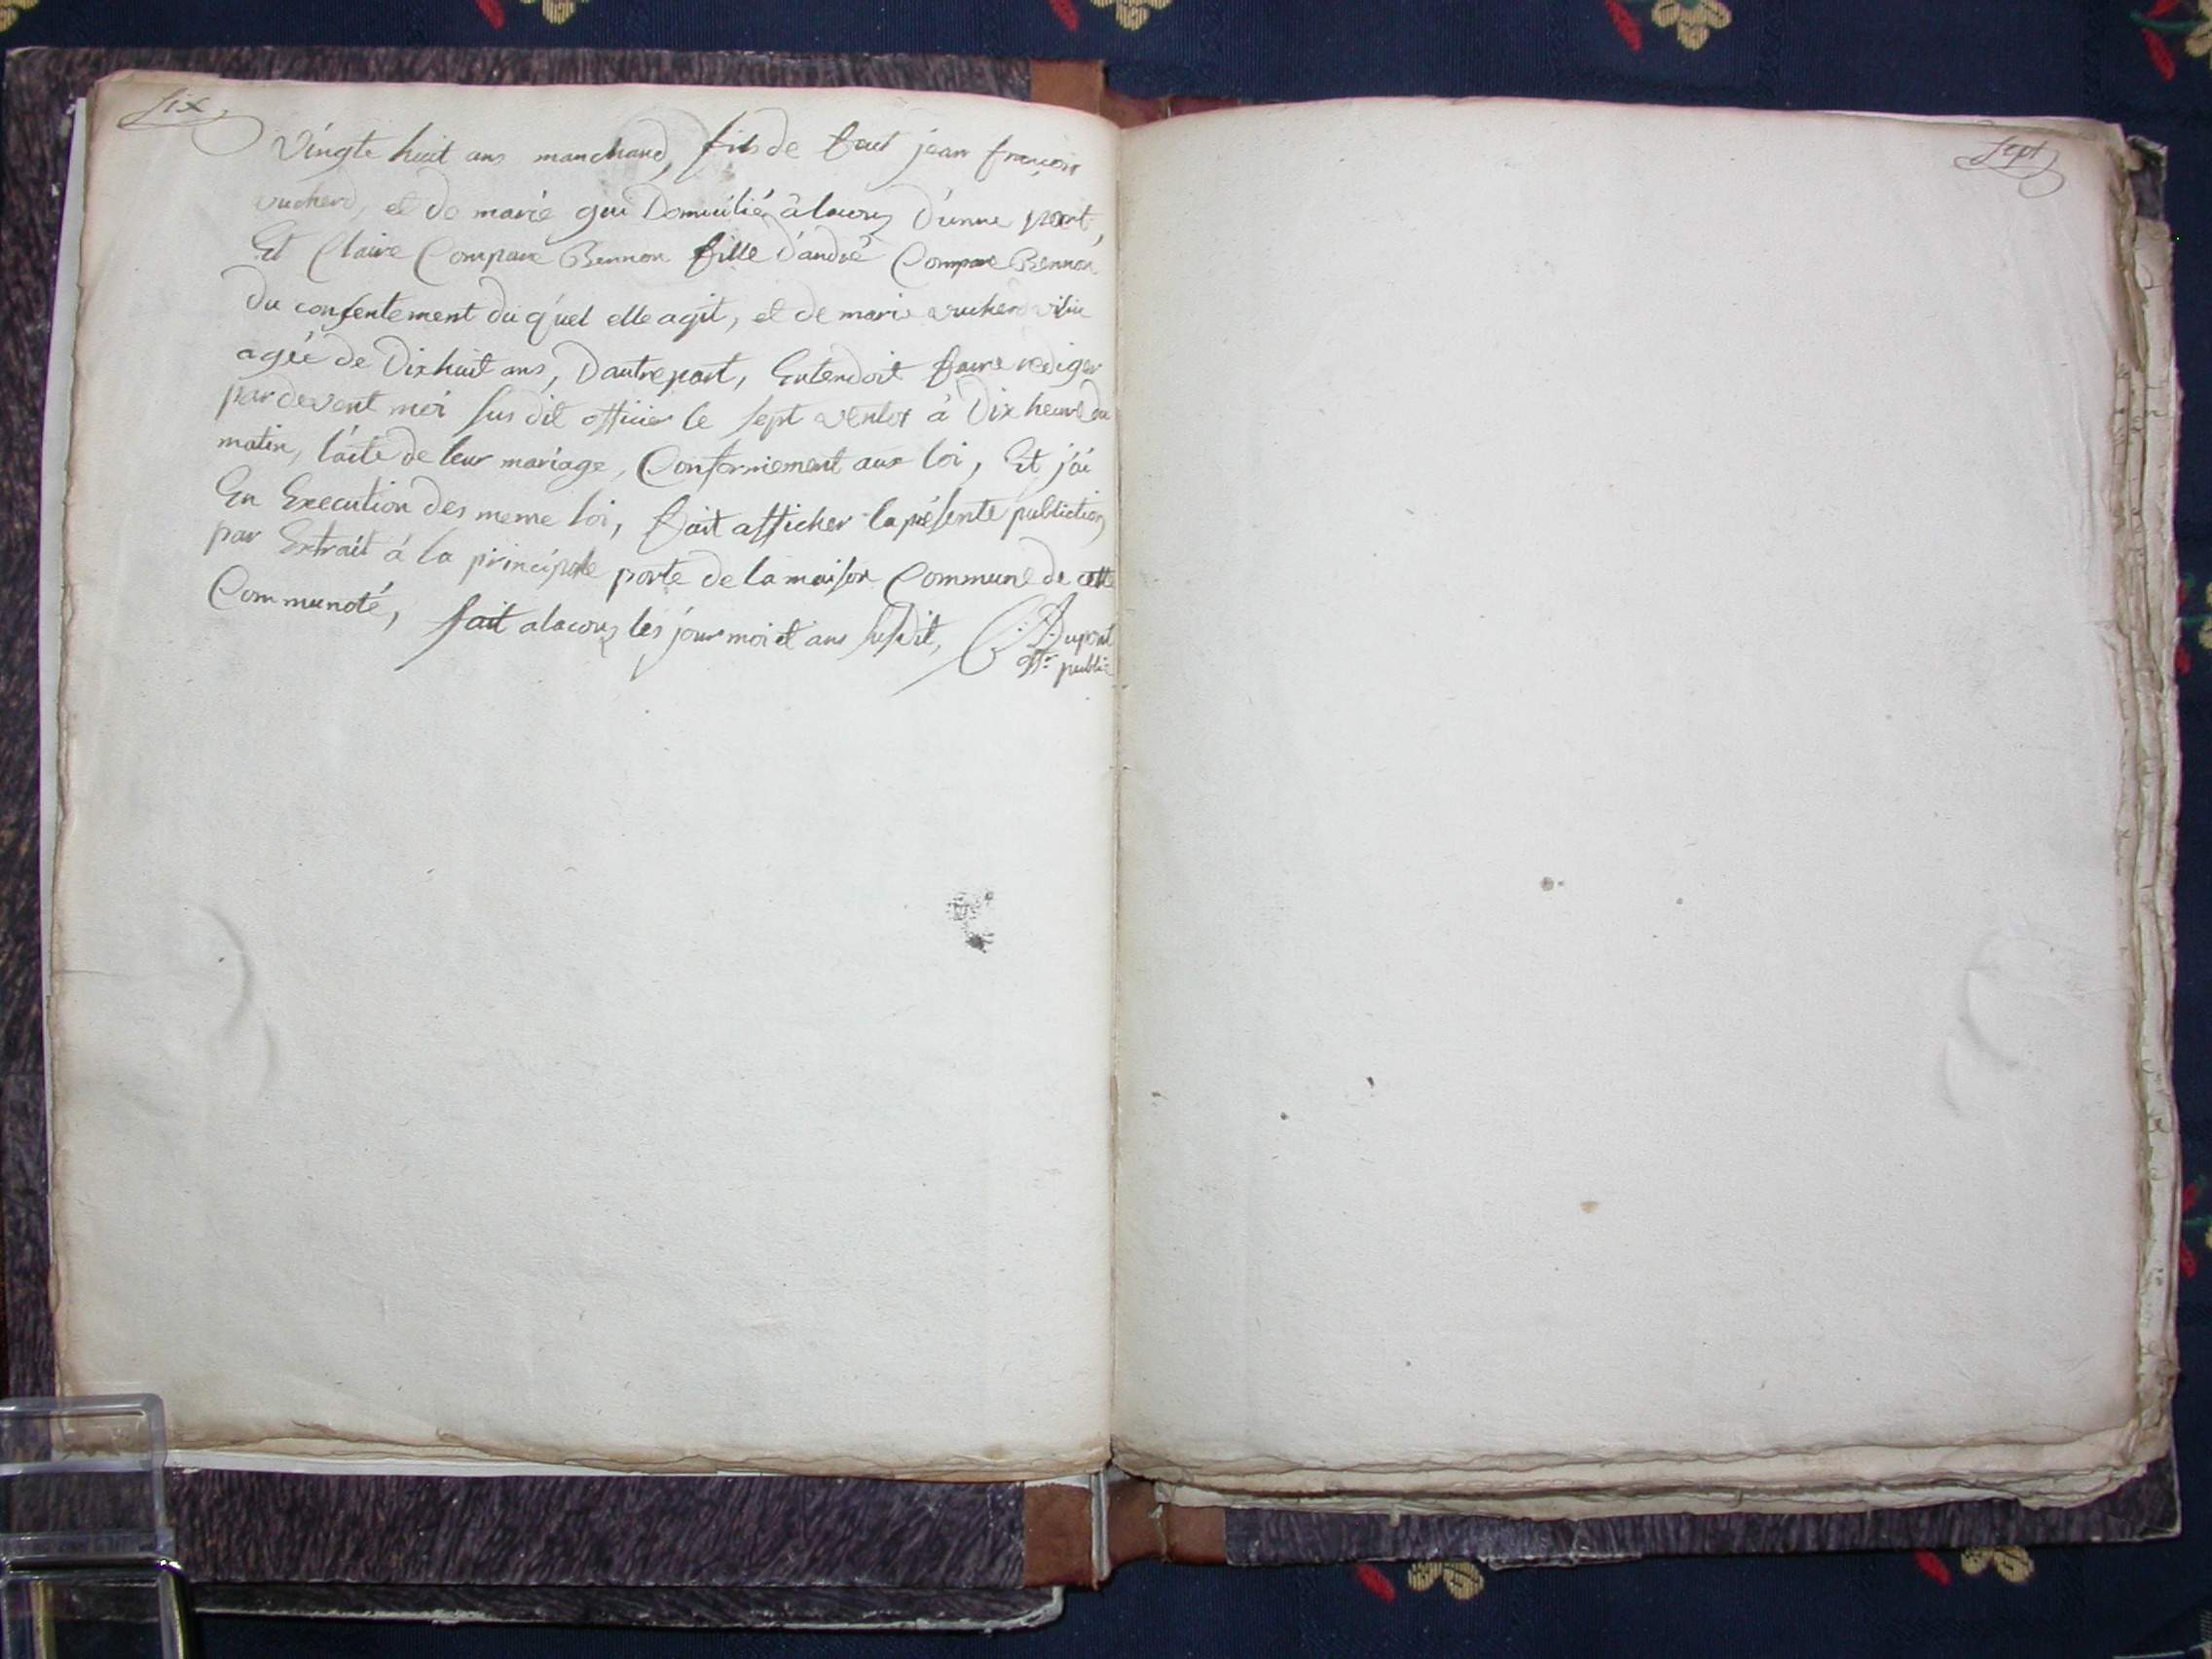 six
Vingte huit ans marchand, fils de feut jean françois
vucherd, et de marie gui Domicilié à lacour d'unne part,
Et Claire Compare Bennon fille d'andré Compare Bennon
Du consentement du q'uel elle agit, et de marie vucherd
agée de Dixhuit ans, D'autre part, Entendoit faire rediger
par devent moi sus dit officier le sept ventos à Dix heure du
matin, l'aite de leur mariage, Conformement aux loi, Et j'ai
En Execution des meme loi, fait afficher la présente publiction
par Extrait à la principale porte de la maison Commune de cette
Communoté, fait alacour les jour moi et ans susdit, Dupont
offr. public
sept